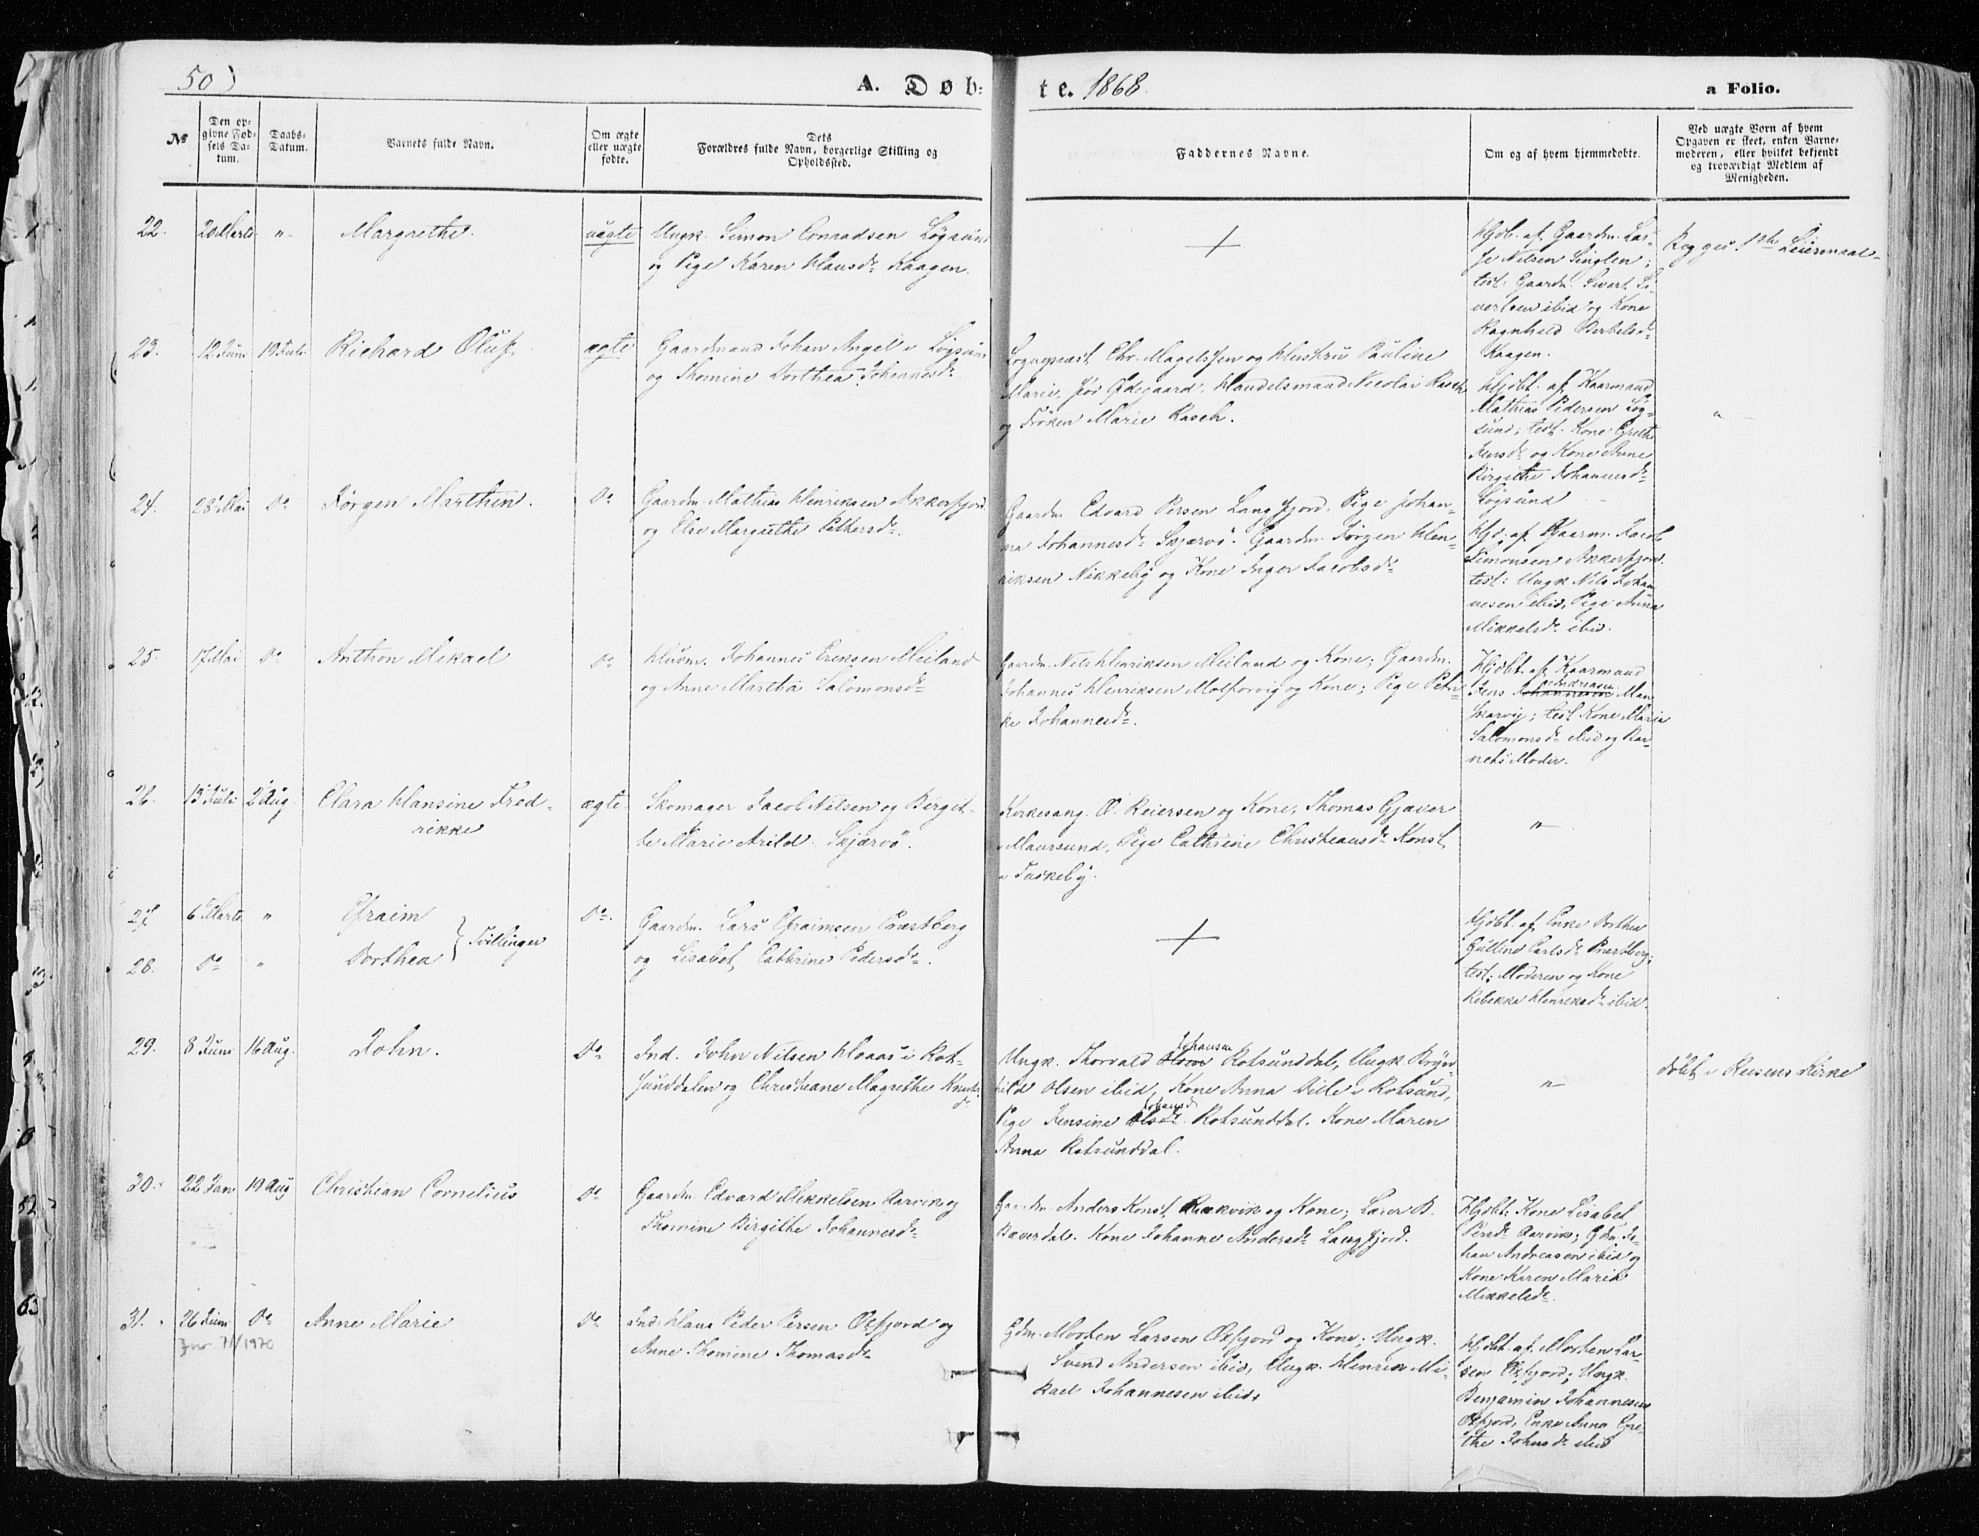 50)
A. Døb-
te. 1868
a Folio.
№
Den op-
givne Fød-
sels Da-
tum.
Daabs-
Datum.
Barnets fulde Navn.
Om ægte
eller uægte
fødte.
Dets
Forældres fulde Navn, borgerlige Stilling og
Opholdssted.
Faddernes Navne.
Om og af hvem hjemmedøbte.
Ved uægte Børn af hvem
Opgaven er skeet, enten Barne-
moderen, eller hvilket bekjendt
og troværdigt Medlem af
Menigheden.
22. 20 Marts " Margrethe. uægte
Ungk. Simon Conradsen Løgsund
og Pige Karen Hansdr Kaagen.
+
Hjdb. af Gaardm. Lar-
s Nilsen Singlen;
test: Gaardm. Sivert Si-
vertsen ibid og Kone
Ragnhild Berteldr
Kaagen.
Begges 1ste Leiermaal
23. 12 Juni 19 Juli Richard Oluf. ægte
Gaardmand Johan Angel i Løgsund
og Thomine Dorthea Johannesdr
Sognepræst Chr. Magelssen og Hustru Pauline
Marie, Handelsmand Nicolai Rasch
og Frøken Marie Rasch.
Hjdbt. af Kaarmand
Mathias Pedersen Løg-
sund; test. Kone Greth
Jensdr og Kone Anne
Birgithe Johannesdr
Løgsund
"
24. 28 Mai Do Jørgen Marthin. Do
Gaardm. Mathias Henriksen Akkerfjord
og Else Margrethe Pethersdr.
Gaardm. Edvard Persen Langfjord. Pige Johan-
na Johannesdr Skjærvø. Gaardm. Jørgen Hen-
riksen Nikkeby og Kone Inger Jacobsdr
Hjd. af Gaarm. Jacob
Simonsen Akkerfjord
test: Ungk Nils Johan-
nesen ibid, Pige Anna
Mikkelsdr ibid.
25. 17 Mai Do Anthon Mikael Do
Husm. Johannes Eriksen Meiland
og Anne Martha Salomonsdr
Gaardm. Nils Henriksen Meiland og Kone; Gaardm.
Johannes Henriksen Molforvig og Kone; Pige Petri-
ke Johannesdr.
Hjdbt. af Kaarmand
Jens Johannesen Andreasen Man-
skarvig; test Kone Maria
Salomonsdr ibid og Bar-
nets Moder.
26. 13 Juli 2 Aug. Clara Hansine Fred-
rikke
ægte
Skomager Jacob Nilsen og Birget-
te Marie Arild. Skjærvø.
Kirkesang. O. Reiersen og Kone, Thomas Gjæver
i Maursund, Pige Cathrine Christiansdr Konst
i Taskeby.
"
27. 6 Marts " Efraim
28. Do " Dorthea
} Tvillinger
Do.
Gaardm. Lars Efraimsen Præstberg
og Lisabet Cathrine Pedersdr.
+
Hjdbt. af Enke Dorthea
Gulline Carlsdr Præstberg;
test; Moderen og Kone
Rebekka Henriksdr ibid.
29. 8 Juni 16 Aug. John. Do
Ind. John Nilsen Haaas i Rot-
sunddalen og Christiane Magrethe Knuts-
dr
Ungk. Thorvald Olsen Johansen Rotsunddal, Ungk. Bryn-
hild Olsen ibid, Kone Anna Dille i Rotsund,
Pige Jensine Olsdr Johansdr Rotsunddal. Kone Maren
Anna Rotsunddal.
"
Døbt i Reisens Kirke
30. 22 Jan 19 Aug Christian Cornelius Do
Gaardm. Edvard Mikkelsen Aarvik og
Thomine Birgithe Johannesdr
Gaardm. Anders Konst Rækvik og Kone; Lærer B.
Bæverdal. Kone Johanne Andersdr Langfjord.
Hjdbt: Kone Lisabet
Persdr Aarvik; Gdm. Jo-
han Andreasen ibid og
Kone Karen Marie
Mikkelsdr.
31. 26 Juni Do Anne Marie Do
Ind. Hans Peder Persen Oksfjord og
Anne Thomine Thomasdr
Gdm. Morten Larsen Oksfjord og Kone; Ungk.
Svend Andersen ibid, Ungk. Henrik Mi-
kael Johannesen ibid.
Hjdbt. af Morten Lar-
sen Oksfjord; Ungk.
Benjamin Johannesen
Oksfjord, Enke Anna Gre-
the Johnsdr ibid